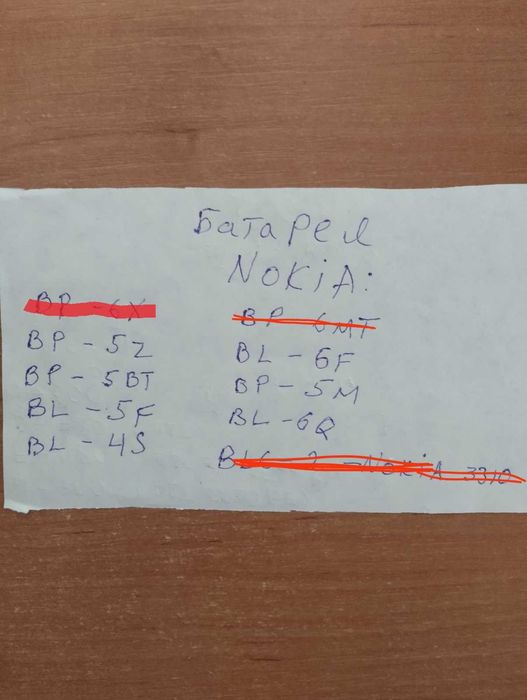 Батарея
NOKiA:
BP - 6X
BP - 5Z
BP - 5BT
BL - 5F
BL - 4S
BP - 6MT
BL - 6F
BP - 5M
BL - 6Q
BLC-2 - NOKiA 3310